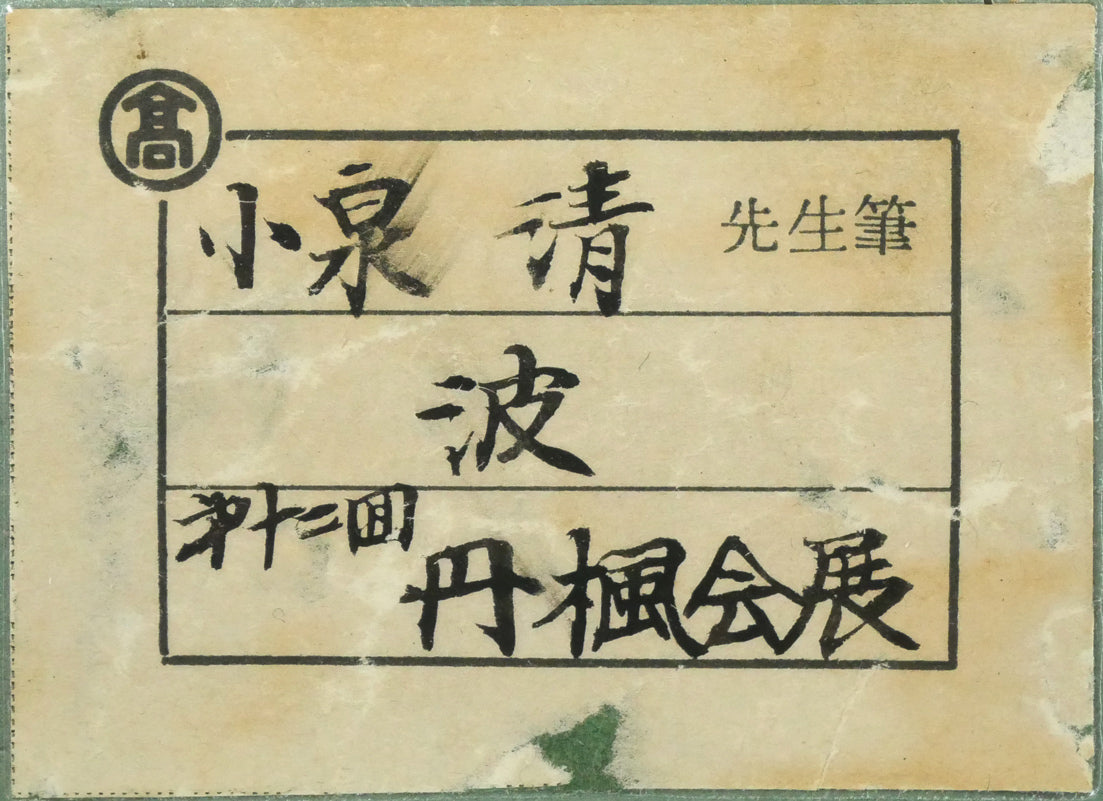 髙
小泉 清 先生筆
波
第十二回
丹楓会展